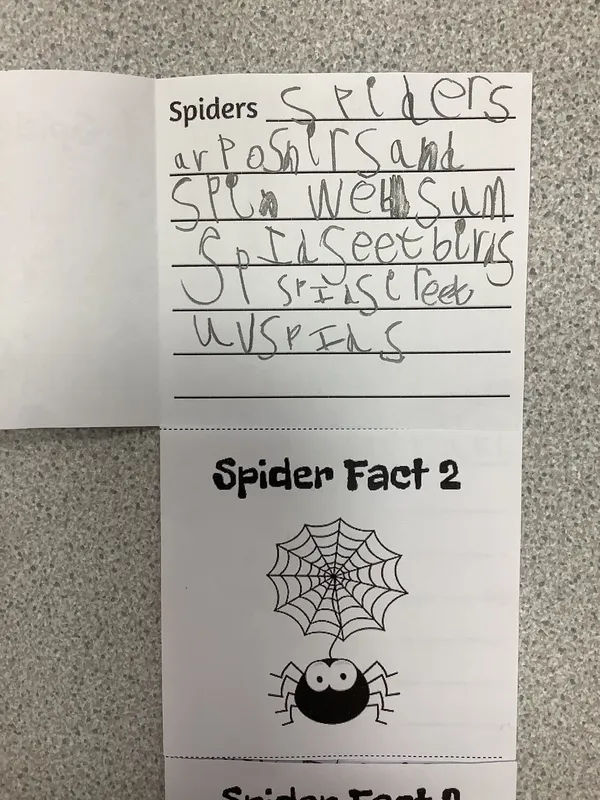 Spiders Spiders
ar posnirs and
spin webs sum
spids eet birds
spids creeb
uv spids
Spider Fact 2
Spider Fact 2